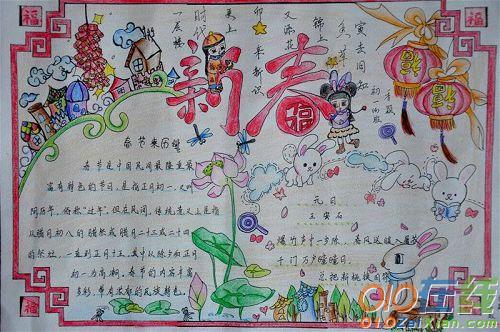 福
福
新春
福
福
福
春节来历
春节是中国民间最隆重最
富有特色的节日,是指正月初一,又叫
阴历年,俗称“过年”。但在民间,传统意义上是指
从腊月初八的腊祭或腊月二十三或二十四
的祭灶,一直到正月十五,其中以除夕和正月
初一为高潮。春节的内容丰富
多彩,带有浓郁的民族特色。
元日
王安石
爆竹声中一岁除,春风送暖入屠苏
千门万户曈曈日,
总把新桃换旧符
福
在线
910zaixian.com